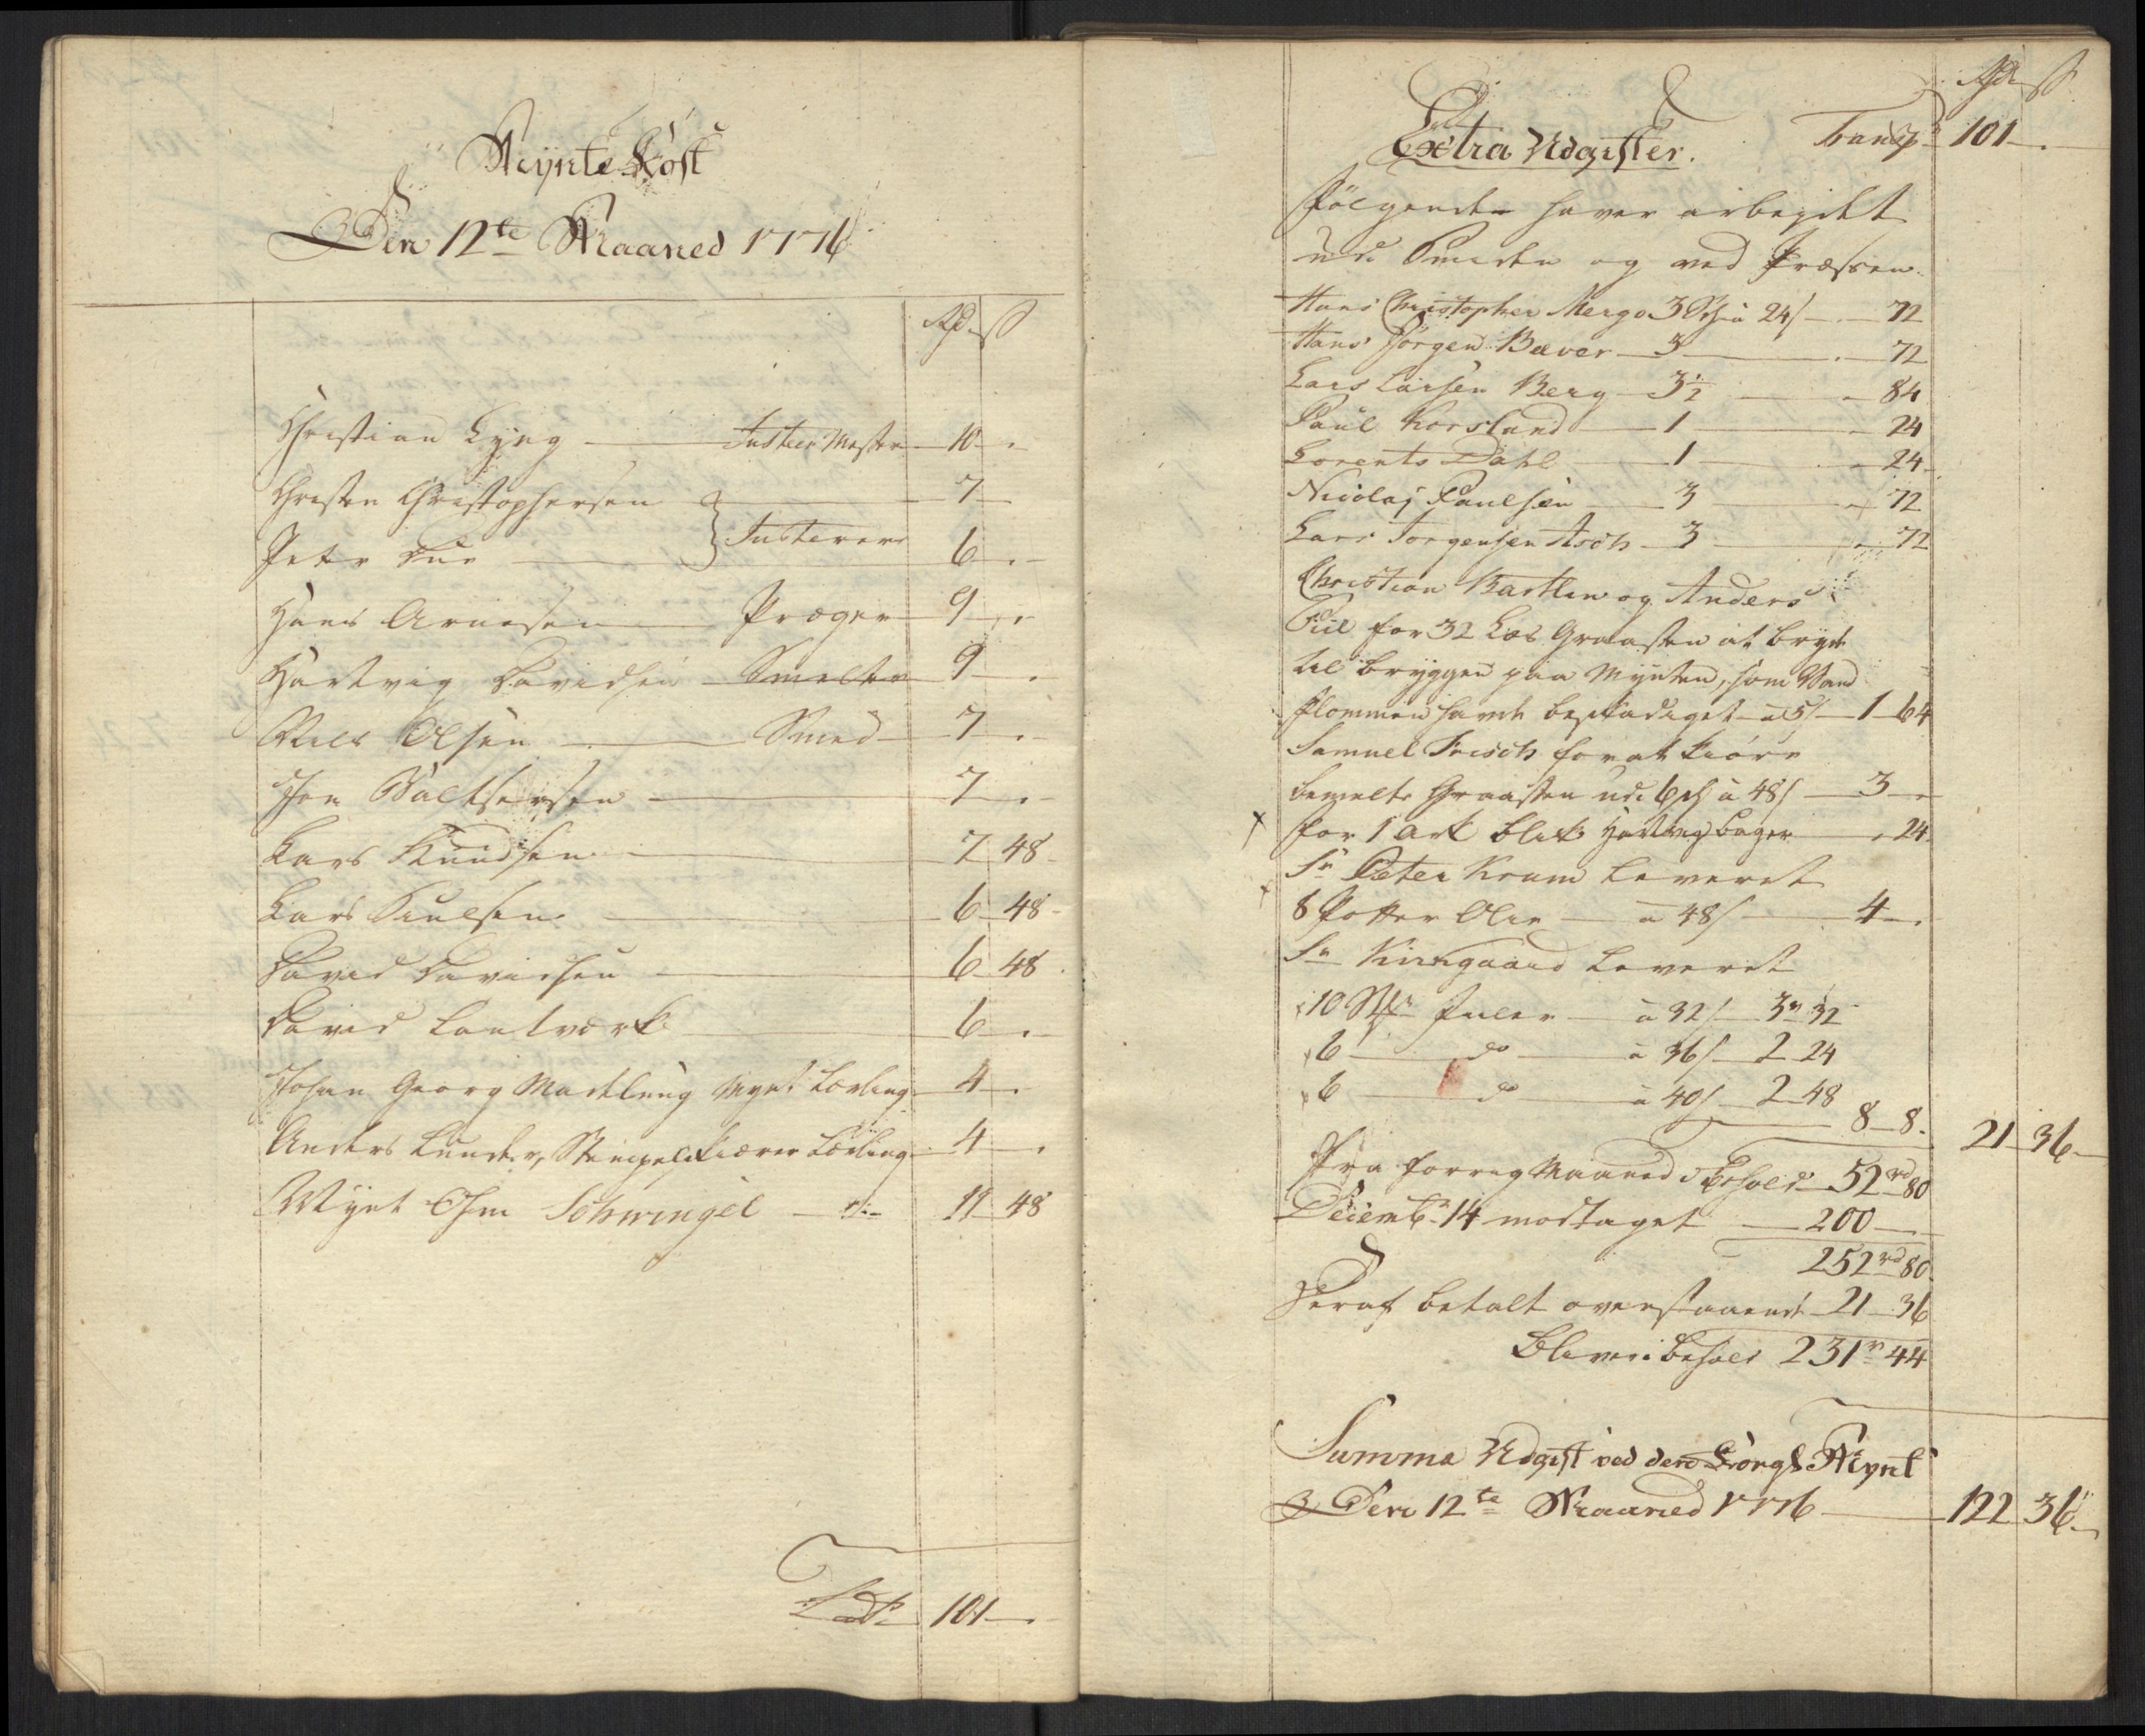 Mynte Kost
Den 12te Maaned 1776
Rd ß
Christian Lyng — Justeer Mester — 10 .
Christen Christophersen — 7
Peter Due — } Justerere 6 .
Hans Arnesen — Præger — 9 .
Hartvig Davidsen — Smelter — 9 .
Niels Olsen — Smed — 7 .
Jon Baltsersen — 7 .
Lars Knudsen — 7 48
Lars Paulsen — 6 48
David Davidsen — 6 48
David Lautværk — 6 .
Johan Georg Madelung Mynt Lærling — 4 .
Anders Lunde, Stempelskiærer Lærling — 4 .
Mynt Schwingel — 11 48
Lats 101 — .
Rd ß
Extra Udgifter. Transp 101 — .
Følgende haver arbeydet
udi Smeden og ved Præssen
Hans Christopher Merga 3 à 24 ß — 72
Hans Jørgen Bæver — 3 — . — 72
Lars Larsen Berg — 3½ — 84
Paul Korslund — 1 — 24
Lorents Dahl — 1 — 24
Nicolaj Paulsen — 3 — 72
Lars Jørgensen Asch — 3 — 72
Christian Bartlin og Anders
Piil for 32 Læs Graasten at bryde
til bryggen paa Mynten, som Vand
flommen havde beskadiget à 5 ß — 1 64
Samuel Frisch for at kiøre
bemelte Graasten udi 6 à 48 ß — 3 .
for 1 Ark Blik Hartvig Bager — 24
Sr Peter Krum Leveret
8 Potter Olie — à 48 ß — 4 — .
Sr Kirkgaard Leveret
10 Stk Fiiler — à 32 ß — 3 32
6 — do — à 36 ß — 2 24
6 — do — à 40 ß — 2 48
8 — 8. 21 36
Fra forrige Maaned i Behold — 52 rd 80
Decembr 14 modtaget — 200
252 rd 80
Deraf betalt ovenstaaende 21 36
Bliver i behold 231 r 44
Summa Udgift ved den Kongl Mynt
Den 12te Maaned 1776 — 122 36